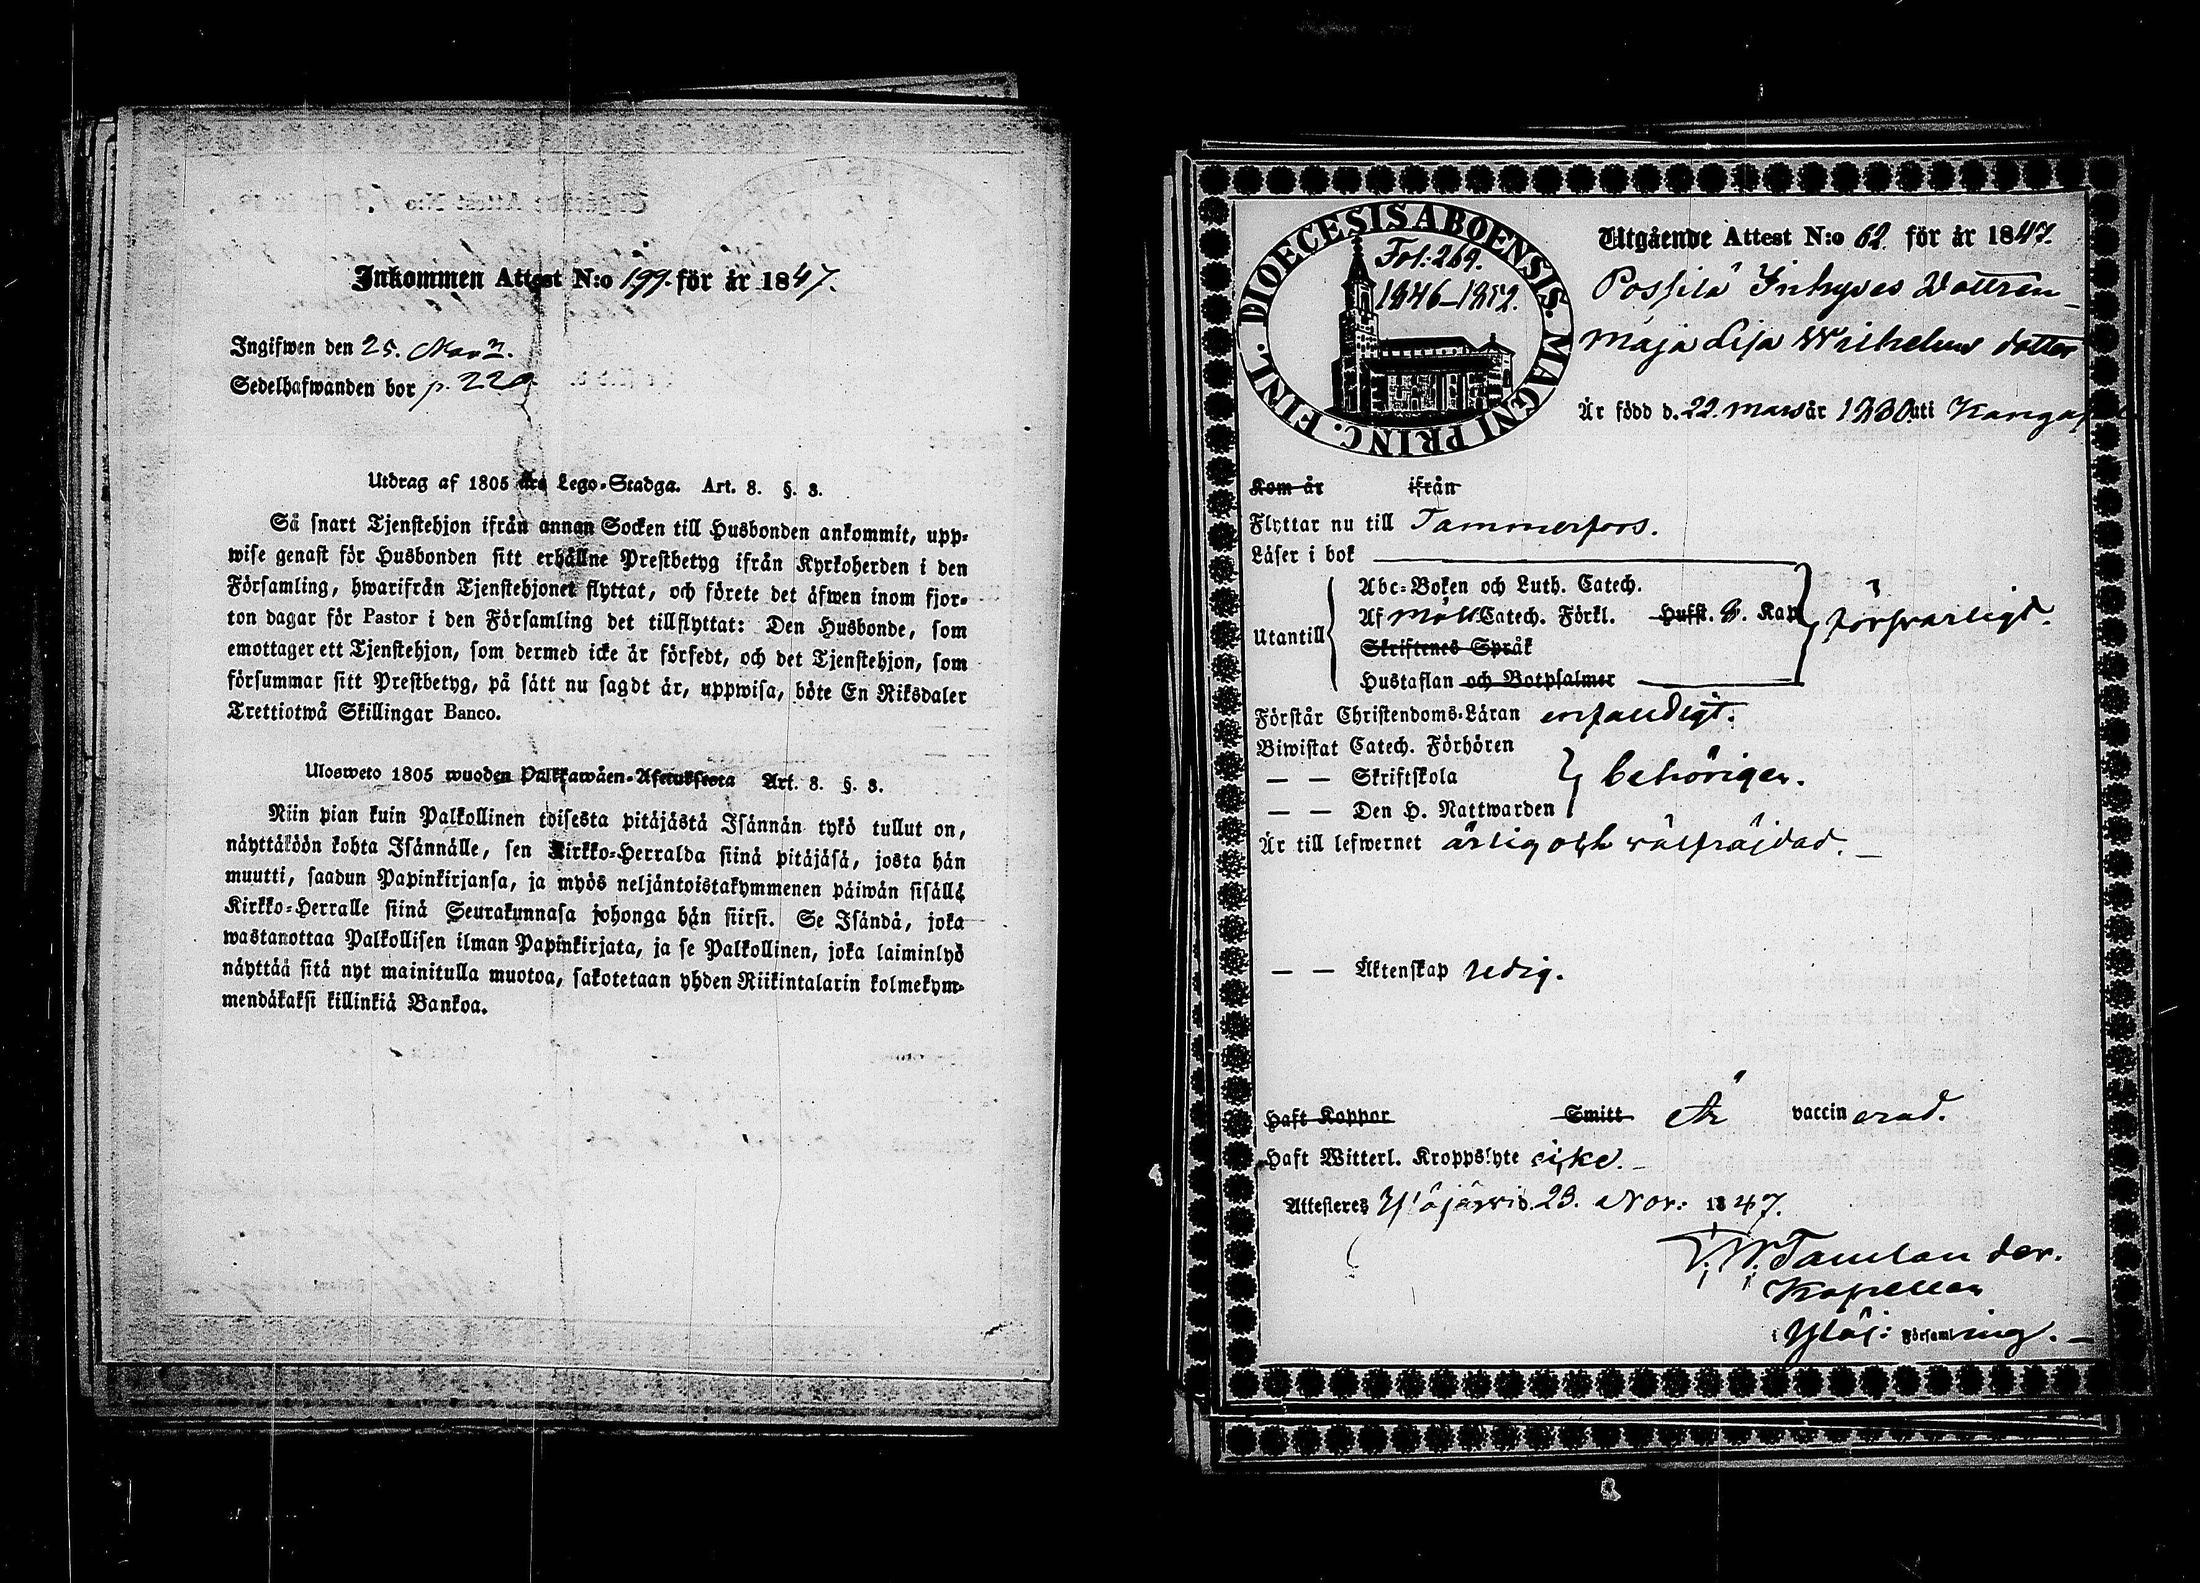 Inkommen Attest N:o 199. för år 1847.
Ingifwen den 25. Novr.
Sedelhafwanden bor p. 220
Utdrag af 1805 års Lego-Stadga. Art. 8. §. 3.
Så snart Tjenstehjon ifrån annan Socken till Husbonden ankommit, upp-
wise genast för Husbonden sitt erhållne Prestbetyg ifrån Kyrkoherden i den
Församling, hwarifrån Tjenstehjonet flyttat, och förete det äfwen inom fjor-
ton dagar för Pastor i den Församling det tillflyttat: Den Husbonde, som
emottager ett Tjenstehjon, som dermed icke är försedt, och det Tjenstehjon, som
försummar sitt Prestbetyg, på sätt nu sagdt är, uppwisa, böte En Riksdaler
Trettiotwå Skillingar Banco.
Ulosweto 1805 wuoden Palkkawäen-Asetuksesta Art. 8. §. 3.
Niin pian kuin Palkollinen toisesta pitäjästä Isännän tykö tullut on,
näyttäköön kohta Isännälle, sen Kirkko-Herralda siinä pitäjäsä, josta hän
muutti, saadun Papinkirjansa, ja myös neljäntoistakymmenen päiwän sisällä
Kirkko-Herralle siinä Seurakunnasa johonga hän siirsi. Se Isändä, joka
wastanottaa Palkollisen ilman Papinkirjata, ja se Palkollinen, joka laiminlyö
näyttää sitä nyt mainitulla muotoa, sakotetaan yhden Riikintalarin kolmekym-
mendäkaksi killinkiä Bankoa.
DIOECESIS ABOENSIS. MAGNI PRINC. FINL.
Fol: 269.
1846-1852.
Utgående Attest N:o 62 för år 1847.
Possilä Inhyses Dottren
Maja Lisa Wilhelms dotter
Är född d. 22. mars år 1830. uti Kangas
Kom år ifrån
Flyttar nu till Tammerfors.
Läser i bok
Utantill
Abc-Boken och Luth. Catech.
Af Möll Catech. Förkl. Hufst. 8. Kap
Skriftenes Språk
Hustaflan och Botpsalmer
försvarligt.
Förstår Christendoms-Läran enfaldigt.
Biwistat Catech. Förhören
— — Skriftskola
— — Den H. Nattwarden
behörigen.
Är till lefwernet ärlig och välfräjdad. —
— — Äktenskap ledig.
Haft Koppor Smitt Är vaccinerad.
Haft Witterl. Kroppslyte icke. —
Attesteres Ylöjärvi d. 23. Nov: 1847.
Tamlander.
Kapellan
i Ylöj: Församling. —